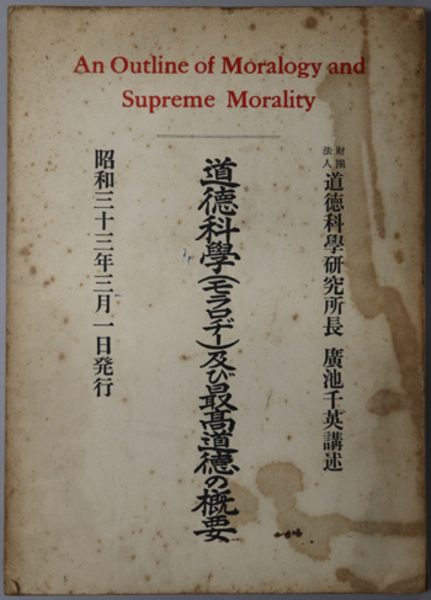 An Outline of Moralogy and
Supreme Morality
財團法人 道德科學研究所長 廣池千英講述
道德科學(モラロヂー)及び最高道德の概要
昭和三十三年三月一日発行